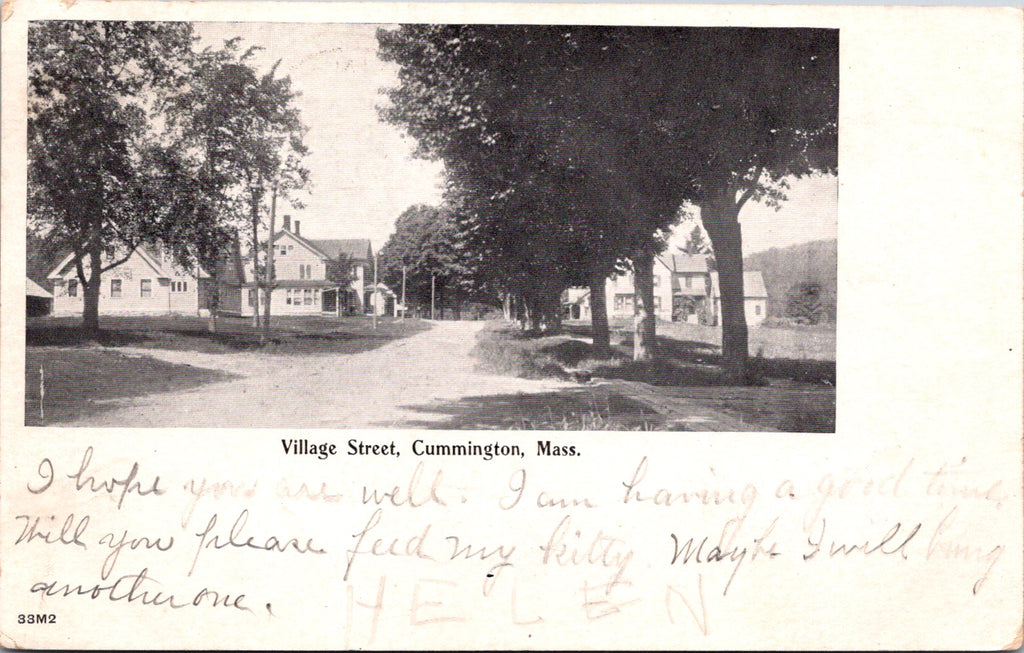 Village Street, Cummington, Mass.
I hope you are well. I am having a good time.
Will you please feed my kitty. Maybe I will bring
another one.
HELEN
33M2